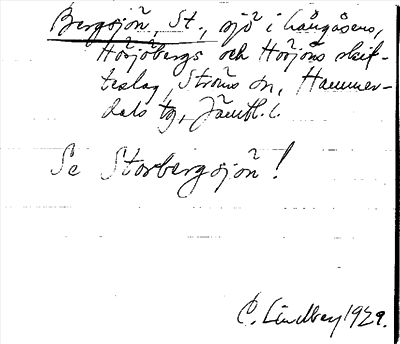 Bergsjön, St., sjö i Långåsens,
Hörjöbergs och Hörjöns skif-
teslag, Ströms sn, Hammer-
dals tg, Jämtl. l.
Se Storbergsjön!
C. Lindberg 1929.